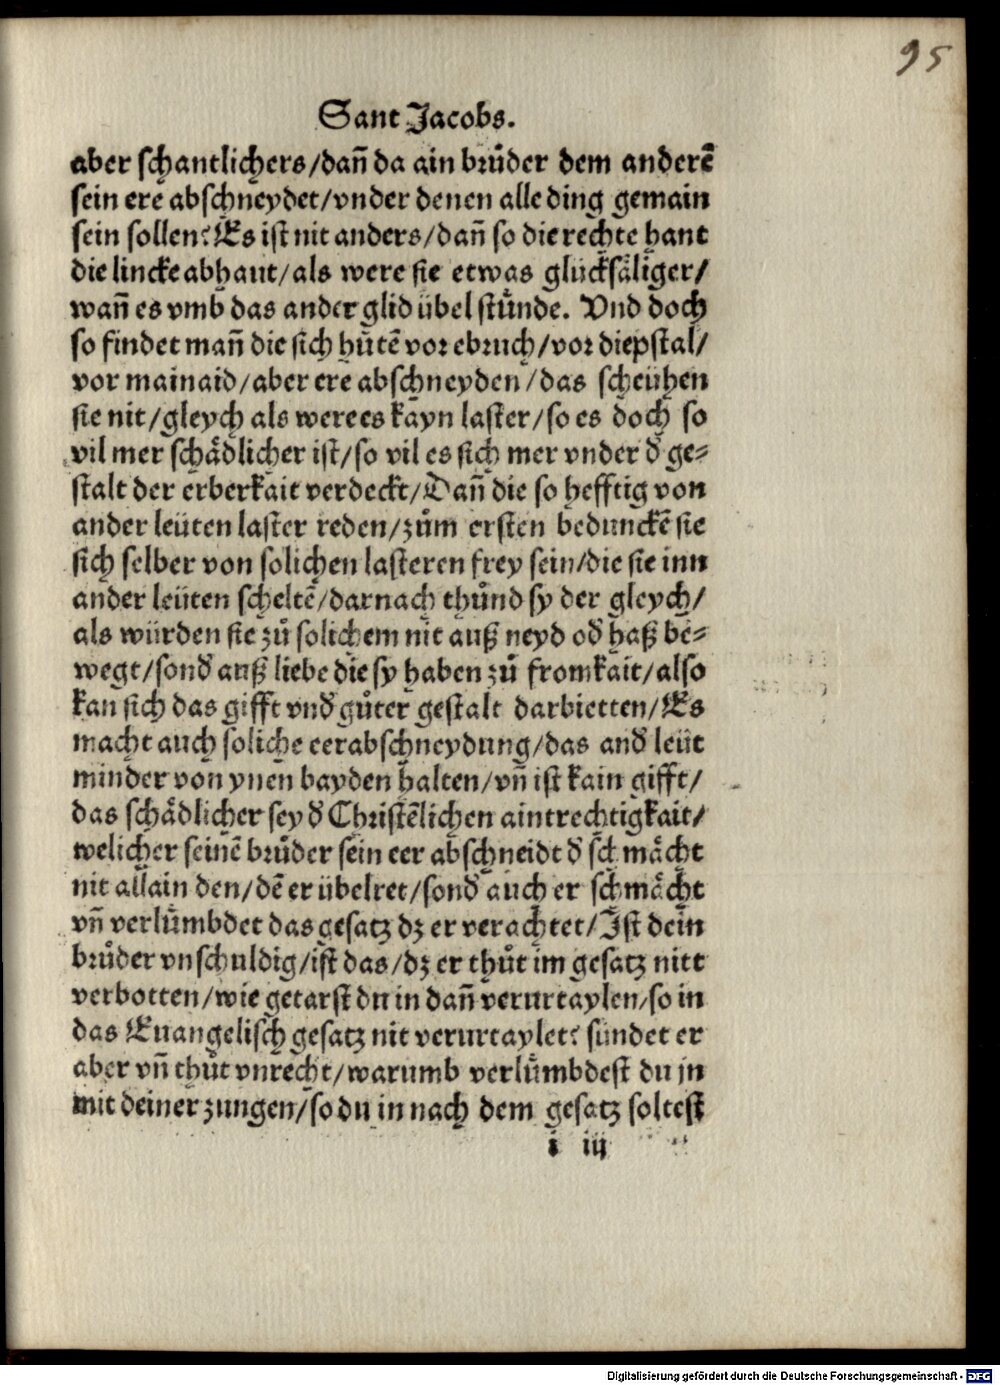 95
Sant Jacobs.
aber schantlichers/dañ da ain brůder dem anderẽ
sein ere abschneydet/vnder denen alle ding gemain
sein sollen? Es ist nit anders/dañ so die rechte hant
die lincke abhaut/als were sie etwas glücksäliger/
wañ es vmb das ander glid übel stůnde. Vnd doch
so findet mañ die sich hůtẽ vor ebruch/vor diepstal/
vor mainaid/aber ere abschneyden/das scheühen
sie nit/gleych als were es kayn laster/so es doch so
vil mer schädlicher ist/so vil es sich mer vnder d̄ ge⸗
stalt der erberkait verdeckt/Dañ die so hefftig von
ander leüten laster reden/zům ersten bedunckẽ sie
sich selber von solichen lasteren frey sein/die sie inn
ander leüten scheltẽ/darnach thůnd sy der gleych/
als würden sie zů solichem nit auß neyd od̄ haß be⸗
wegt/sond̄ auß liebe die sy haben zů fromkait/also
kan sich das gifft vnd̄ gůter gestalt darbietten/Es
macht auch soliche eerabschneydung/das and̄ leüt
minder von ynen bayden halten/vñ ist kain gifft/
das schädlicher sey d̄ Christẽlichen aintrechtigkait/
welicher seinẽ brůder sein eer abschneidt d̄ schmächt
nit allain den/dẽ er übelret/sond̄ auch er schmächt
vñ verlůmbdet das gesatz dz er verachtet/Ist dein
brůder vnschuldig/ist das/dz er thůt im gesatz nitt
verbotten/wie getarst du in dañ verurtaylen/so in
das Euangelisch gesatz nit verurtaylet? sündet er
aber vñ thůt vnrecht/warumb verlůmbdest du jn
mit deiner zungen/so du in nach dem gesatz soltest
i iij
Digitalisierung gefördert durch die Deutsche Forschungsgemeinschaft - DFG